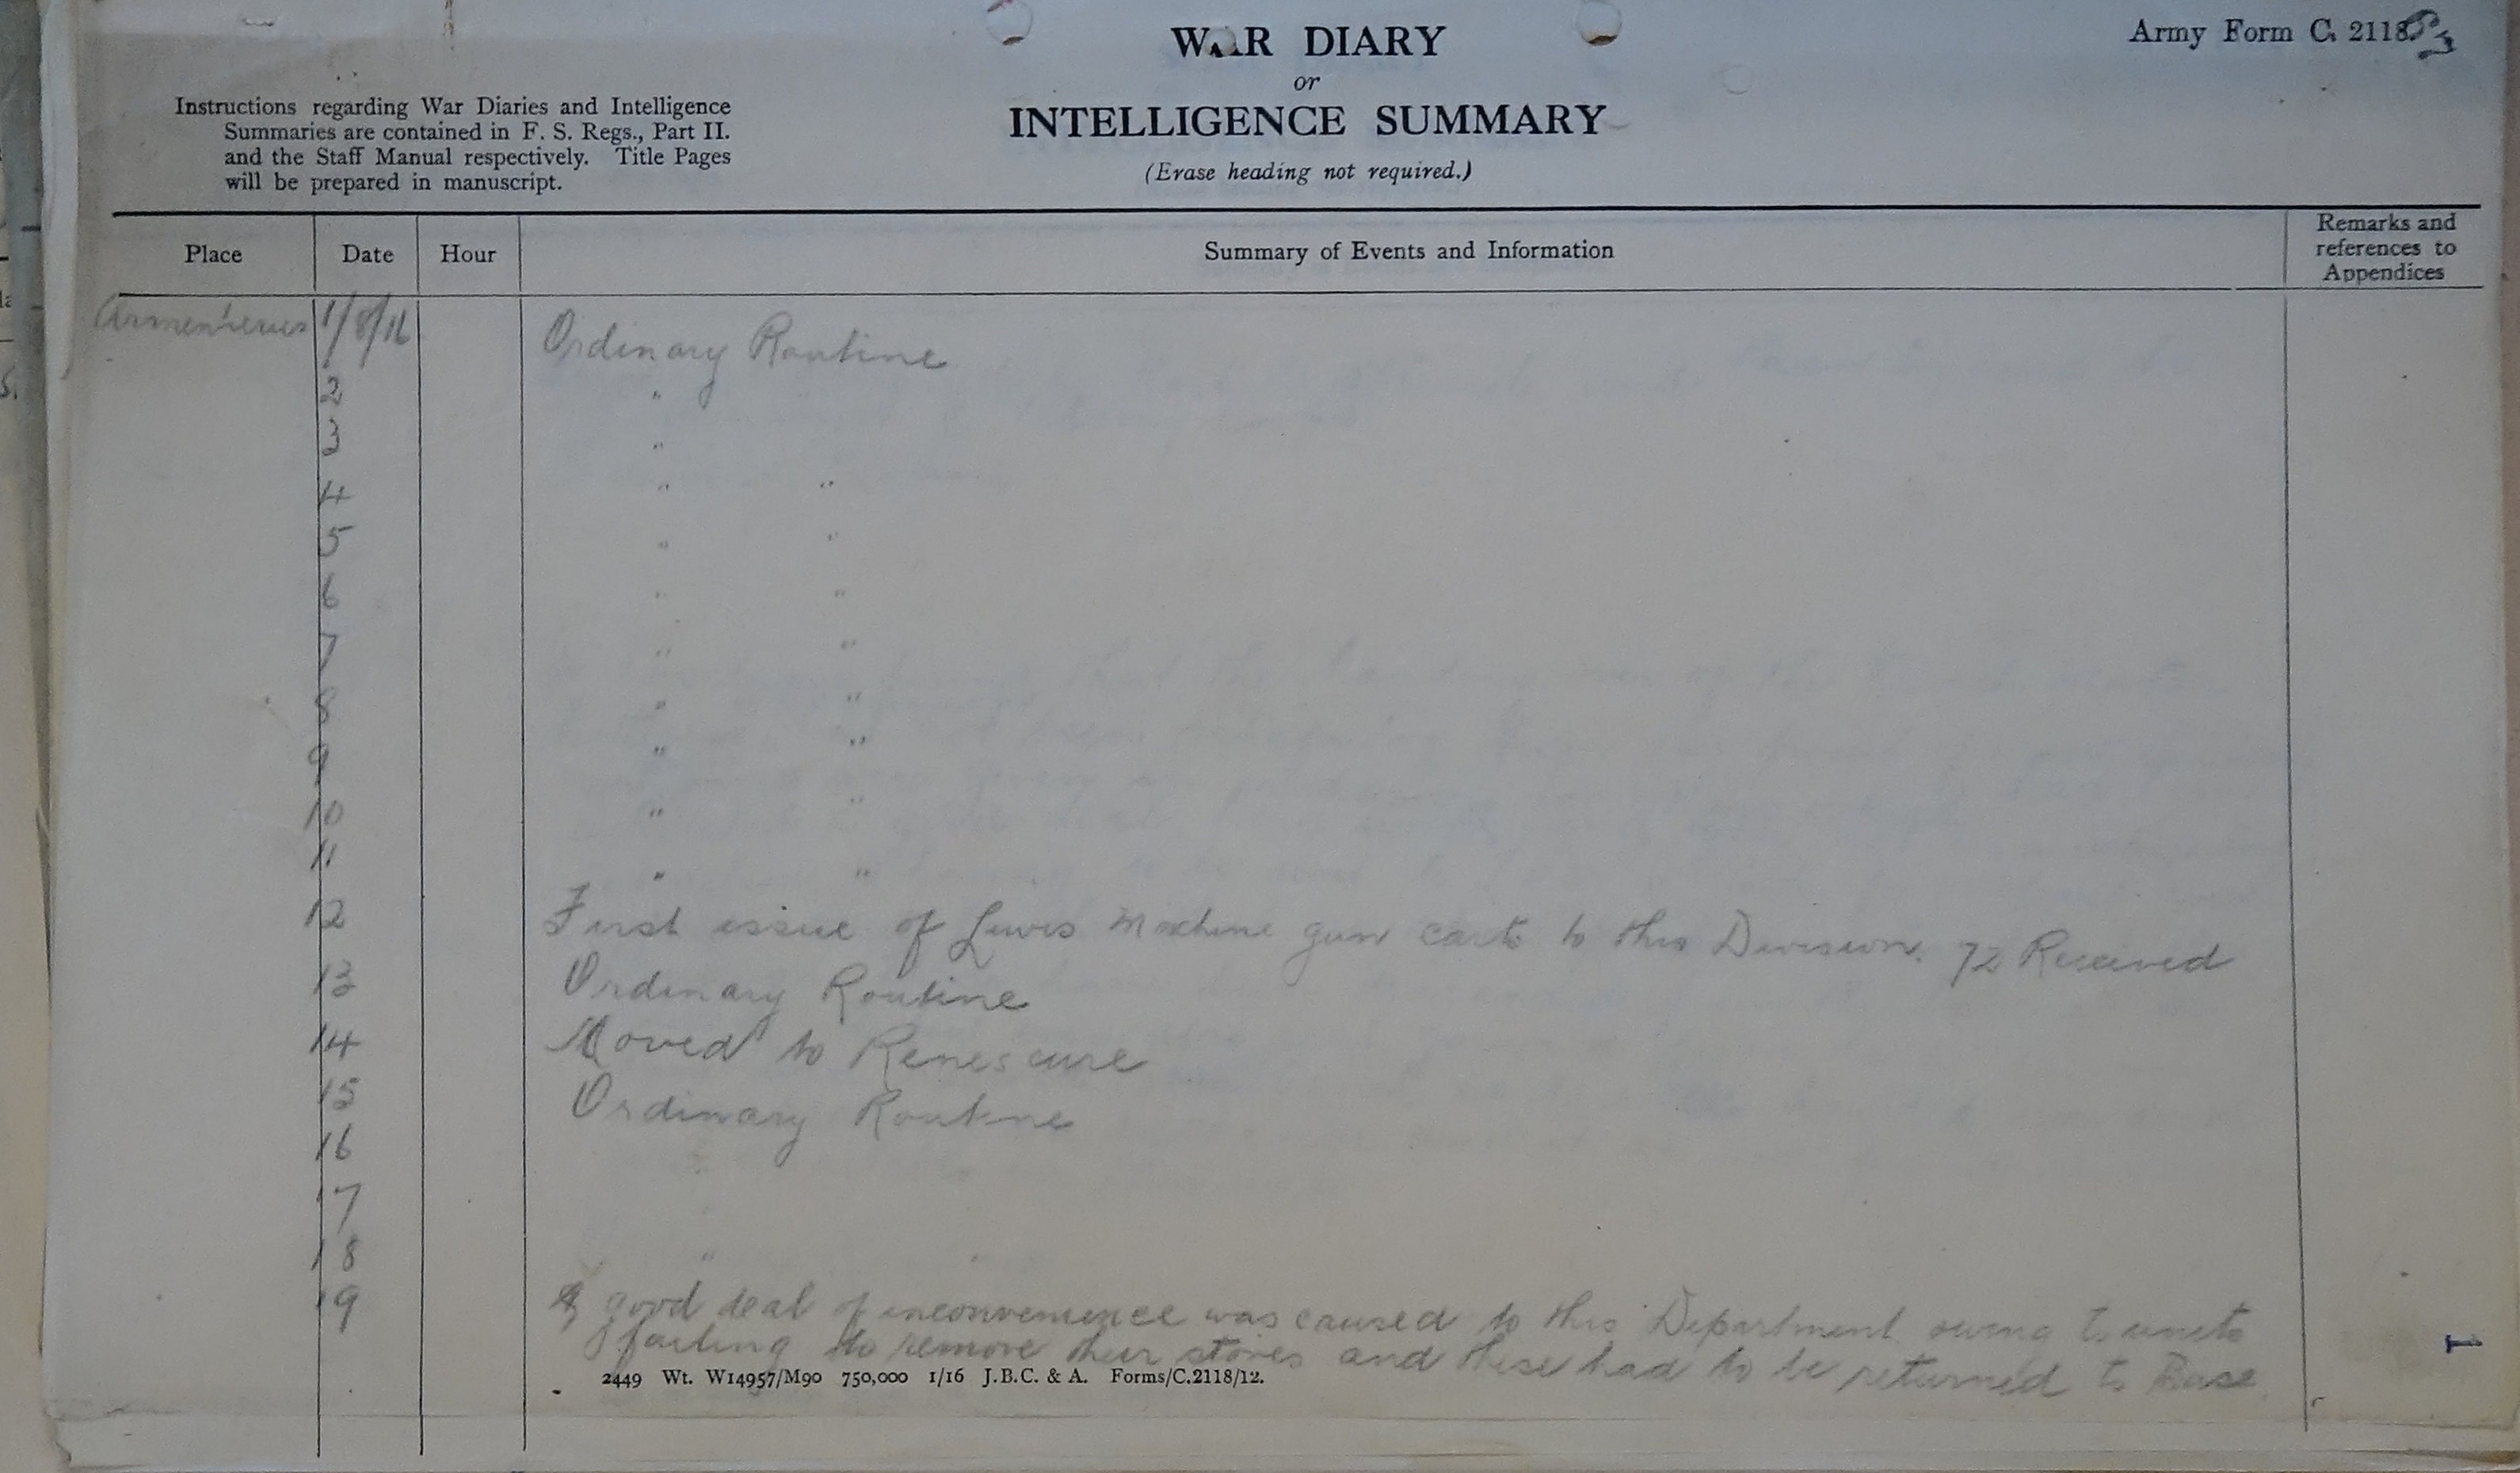 WAR DIARY
or
INTELLIGENCE SUMMARY
(Erase heading not required.)
Army Form C. 2118
Instructions regarding War Diaries and Intelligence
Summaries are contained in F. S. Regs., Part II.
and the Staff Manual respectively. Title Pages
will be prepared in manuscript.
Place Date Hour Summary of Events and Information Remarks and references to Appendices
Armentieres 1/8/16 Ordinary Routine
2 "
3 "
4 " "
5 " "
6 " "
7 " "
8 " "
9 " "
10 " "
11 " "
12 First issue of Lewis Machine gun carts to this Division. 72 Received
13 Ordinary Routine
14 Moved to Renescure
15 Ordinary Routine
16
17
18 "
19 A good deal of inconvenience was caused to this Department owing to units
failing to remove their stores and these had to be returned to Base.
2449 Wt. W14957/M90 750,000 1/16 J.B.C. & A. Forms/C.2118/12.
1